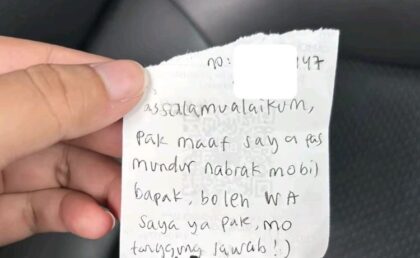 no: 47
assalamualaikum,
pak maaf saya pas
mundur nabrak mobil
bapak, boleh WA
saya ya pak, mo
tanggung jawab!)